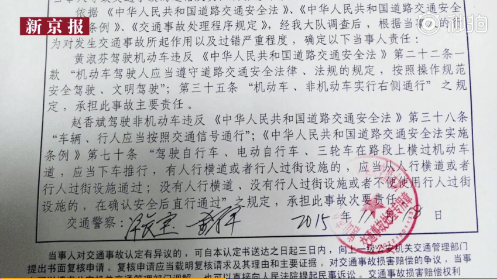 新京报
依据《中华人民共和国道路交通安全法》、《中华人民共和国道路交通安全
条例》、《交通事故处理程序规定》，经我大队调查后，根据当事人的
为对发生交通事故所起作用以及过错严重程度，确定以下当事人责任：
黄淑芬驾驶机动车违反《中华人民共和国道路交通安全法》第二十二条一
款“机动车驾驶人应当遵守道路交通安全法律、法规的规定，按照操作规范
安全驾驶、文明驾驶”；第三十五条“机动车、非机动车实行右侧通行”之规
定，承担此事故主要责任。
赵香斌驾驶非机动车违反《中华人民共和国道路交通安全法》第三十八条
“车辆、行人应当按照交通信号通行”；《中华人民共和国道路交通安全法实施
条例》第七十条“驾驶自行车、电动自行车、三轮车在路段上横过机动车
道，应当下车推行，有人行横道或者行人过街设施的，应当从人行横道或者
行人过街设施通过；没有人行横道、没有行人过街设施或者不便使用行人过街
设施的，在确认安全后直行通过”之规定，承担此事故次要责任。
交通警察：
2015年11月
当事人对交通事故认定有异议的，可自本认定书送达之日起三日内，向上一级公安机关交通管理部门
提出书面复核申请。复核申请应当载明复核请求及其理由和主要证据。对交通事故损害赔偿的争议，当事